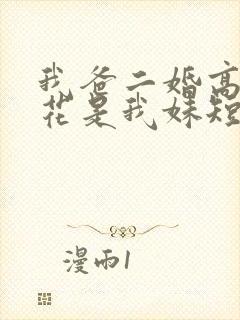 我爸二婚高
花是我妹短
漫雨1